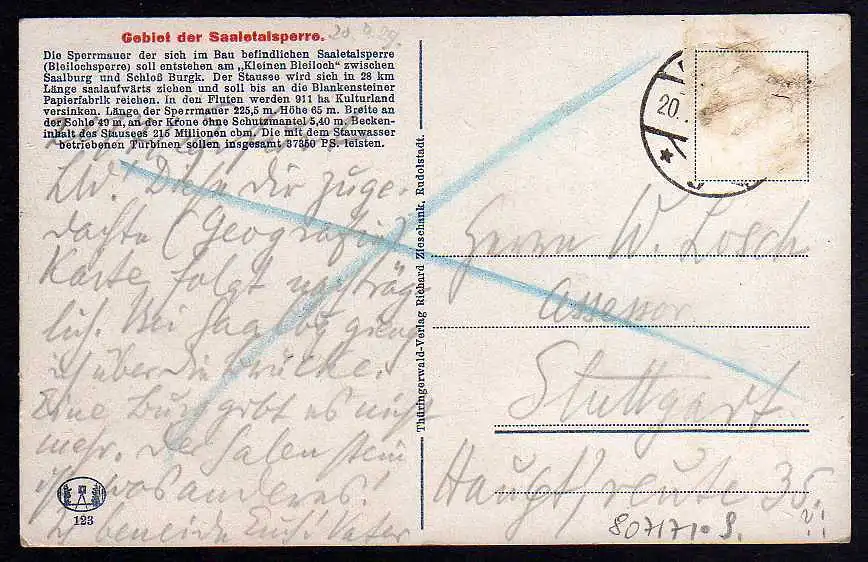 Gebiet der Saaletalsperre.
Die Sperrmauer der sich im Bau befindlichen Saaletalsperre
(Bleilochsperre) soll entstehen am „Kleinen Bleiloch” zwischen
Saalburg und Schloß Burgk. Der Stausee wird sich in 28 km
Länge saalaufwärts ziehen und soll bis an die Blankensteiner
Papierfabrik reichen. In den Fluten werden 911 ha Kulturland
versinken. Länge der Sperrmauer 225,5 m. Höhe 65 m. Breite an
der Sohle 49 m, an der Krone ohne Schutzmantel 5,40 m. Becken-
inhalt des Stausees 215 Millionen cbm. Die mit dem Stauwasser
betriebenen Turbinen sollen insgesamt 37350 PS. leisten.
LW! Diese dir zuge-
dachte (Geografie)
Karte folgt nachträg
lich. Bei Saalburg ging
ich über die Brücke.
Eine Burg gibt es nicht
mehr. Der Halenstein
ist was anderes!
Ich beneide Euch! Vater
123
Thüringerwald-Verlag Richard Zieschank, Rudolstadt.
20.
Herrn W. Losch
Assessor
Stuttgart
35
807171